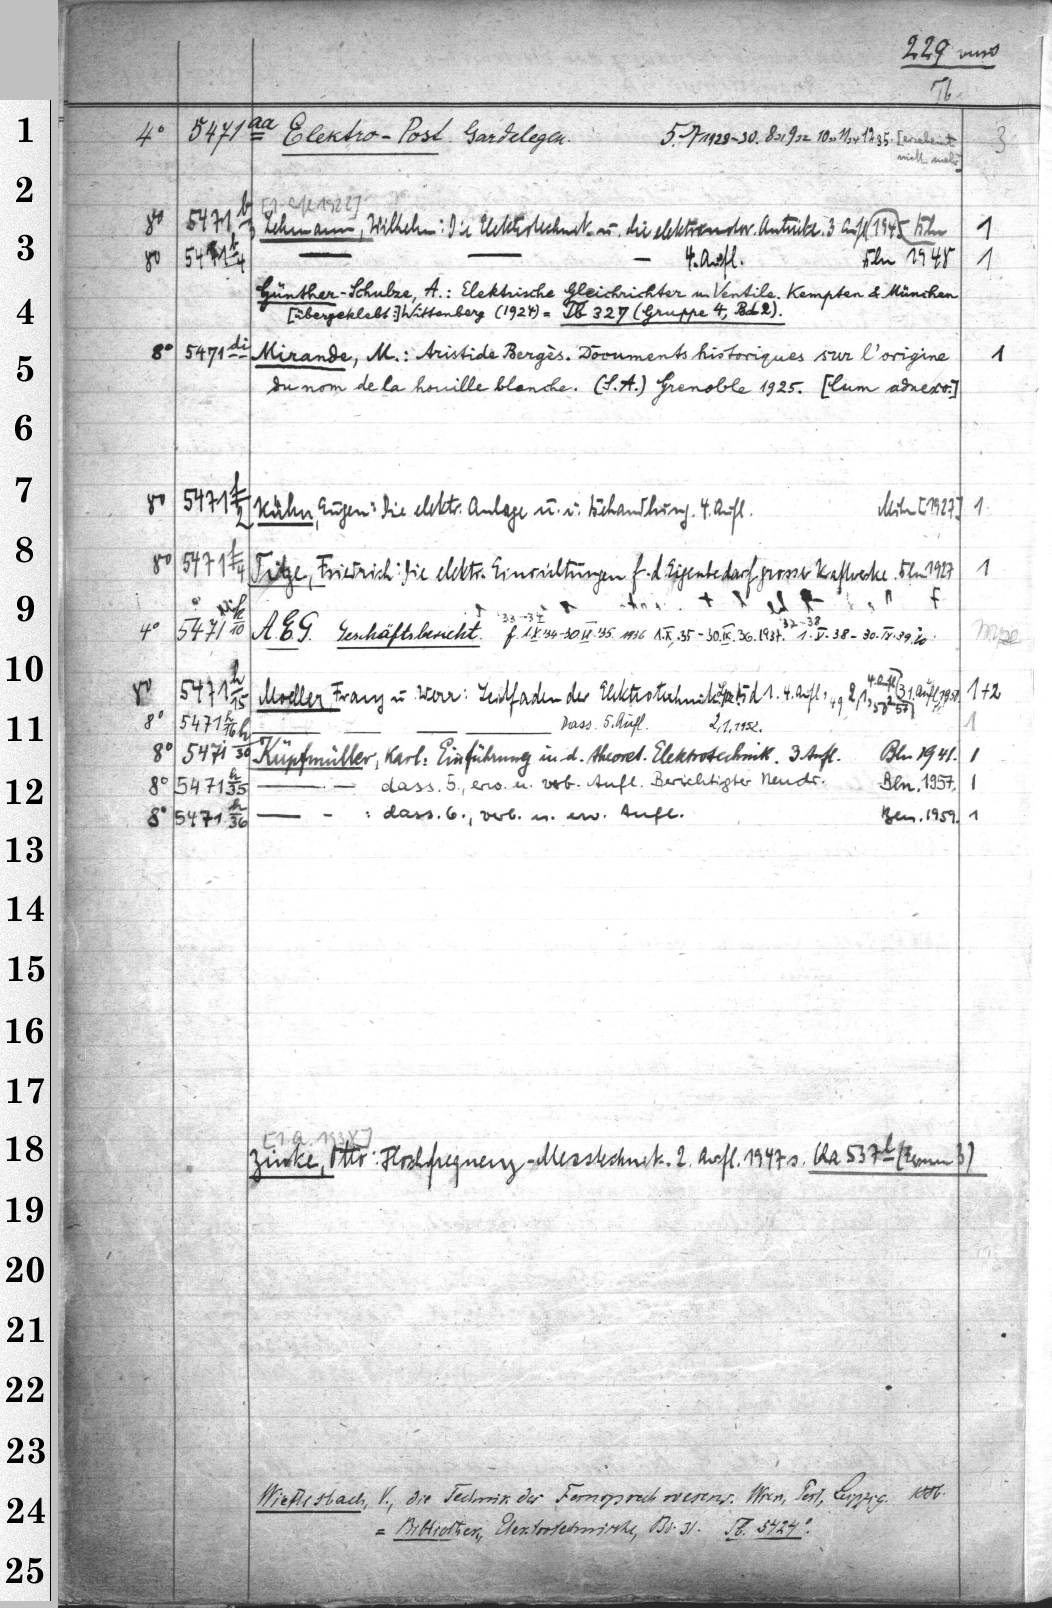 229 verso
Tb.
1 4° 5471 aa Elektro-Post. Gardelegen. 5.-7 1928-30. 8 31 9 32 10 33 11 34 12 35. [erscheint nicht mehr] 3
2
[1. Aufl. 1922]
8° 5471 b/3 Lehmann, Wilhelm: Die Elektrotechnik u. die elektromotor. Antriebe. 3 Aufl 1945 Bln 1
3 8° 5471 b/4 — — — 4. Aufl. Bln 1948 1
Günther-Schulze, A.: Elektrische Gleichrichter u. Ventile. Kempten & München
4 [übergeklebt:] Wittenberg (1924) = Tb 327 (Gruppe 4, Bd 2).
8° 5471 di Mirande, M.: Aristide Bergès. Documents historiques sur l'origine 1
5 du nom de la houille blanche. (S.A.) Grenoble 1925. [Cum adnexo.]
6
7 8° 5471 f/2 Kühn, Eugen: Die elektr. Anlage u. i. Behandlung. 4. Aufl. [1927] 1
8 8° 5471 f/4 Titze, Friedrich: Die elektr. Einrichtungen f. d. Eigenbedarf grosser Kraftwerke. Bln 1927 1
9 '33-34 32-38
4° 5471 h/10 A.E.G. Geschäftsbericht. f. 1.X.34-30.IX.35. 1936 1.X.35-30.IX.36. 1937. 1.V.38-30.IV.39.
10 8° 5471 h/15 Moeller Franz u. Werr: Leitfaden der Elektrotechnik Bd 1. 4. Aufl. 49 2,1, 1+2
11 8° 5471 h/16 — — — — Dass. 5. Aufl. 2,1. 1952. 1
8° 5471 h/30 Küpfmüller, Karl: Einführung in d. theoret. Elektrotechnik. 3 Aufl. Bln 1941. 1
12 8° 5471 h/35 — — dass. 5., erw. u. verb. Aufl. Berichtigter Neudr. Bln. 1957. 1
8° 5471 h/36 — - : dass. 6., verb. u. erw. Aufl. Bln. 1959. 1
13
14
15
16
17
[1 A. 1938]
18 Zinke, Otto: Hochfrequenz-Messtechnik. 2. Aufl. 1947 s. Ka 537 l
19
20
21
22
23
24 Wietlisbach, V., die Technik des Fernsprechwesens. Wien, Pest, Leipzig. 1886.
= Bibliothek, Elektrotechnische, Bd. 31. Tb. 5424°.
25